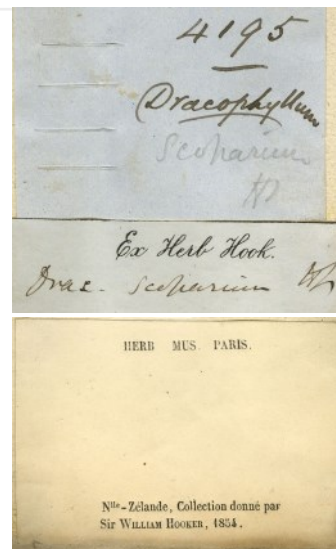 4195
Dracophyllum
Scoparium
Ex Herb Hook.
Drac. Scoparium
HERB MUS. PARIS.
Nlle-Zélande, Collection donné par
Sir WILLIAM HOOKER, 1854.